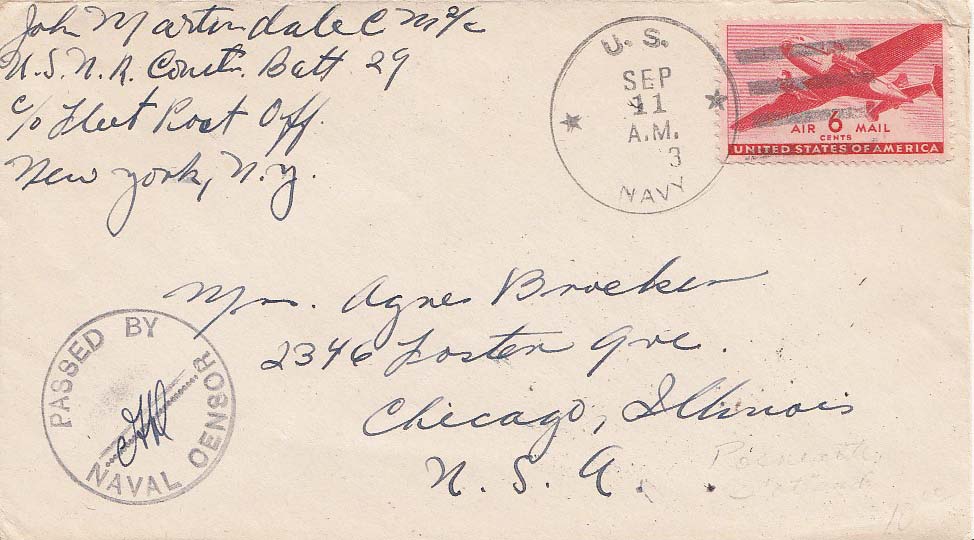 John Martindale C M 2/c
U.S.N.R. Constr. Batt 29
c/o Fleet Post Off.
New York, N.Y.
U. S.
SEP
11
A.M.
3
NAVY
AIR 6 MAIL
CENTS
UNITED STATES OF AMERICA
Mrs. Agnes Brocken
2346 Foster Ave.
Chicago, Illinois
U. S. A.
PASSED BY
NAVAL CENSOR
10